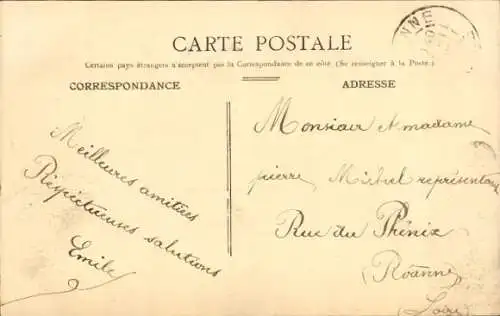 CARTE POSTALE
Certains pays étrangers n'acceptent pas la Correspondance de ce côté (Se renseigner à la Poste.)
CORRESPONDANCE
ADRESSE
Meilleures amitiées
Respectueuses salutions
Emile
Monsieur et madame
pierre représentant
Rue du Phénix
Roanne
(Loire)